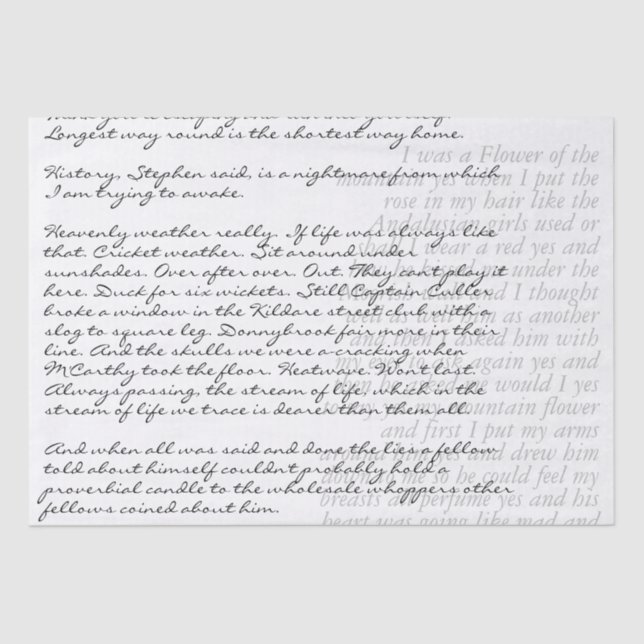 Longest way round is the shortest way home.
History, Stephen said, is a nightmare from which
I am trying to awake.
Heavenly weather really. If life was always like
that. Cricket weather. Sit around under
sunshades. Over after over. Out. They can't play it
here. Duck for six wickets. Still Captain Culler
broke a window in the Kildare street club with a
slog to square leg. Donnybrook fair more in their
line. And the skulls we were acracking when
M'Carthy took the floor. Heatwave. Won't last.
Always passing, the stream of life, which in the
stream of life we trace is dearer than them all.
And when all was said and done the lies a fellow
told about himself couldn't probably hold a
proverbial candle to the wholesale whoppers other
fellows coined about him.
I was a Flower of the
mountain yes when I put the
rose in my hair like the
Andalusian girls used or
shall I wear a red yes and
under the
and I thought
well as well him as another
and then I asked him with
my eyes to ask again yes and
then he asked me would I yes
mountain flower
and first I put my arms
around him yes and drew him
down to me so he could feel my
breasts all perfume yes and his
heart was going like mad and